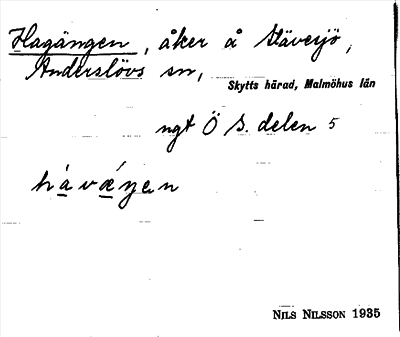 Hagängen, åker å Stävesjö,
Anderslövs sn,
Skytts härad, Malmöhus län
ngt Ö S. delen 5
hávǽŋen
NILS NILSSON 1935